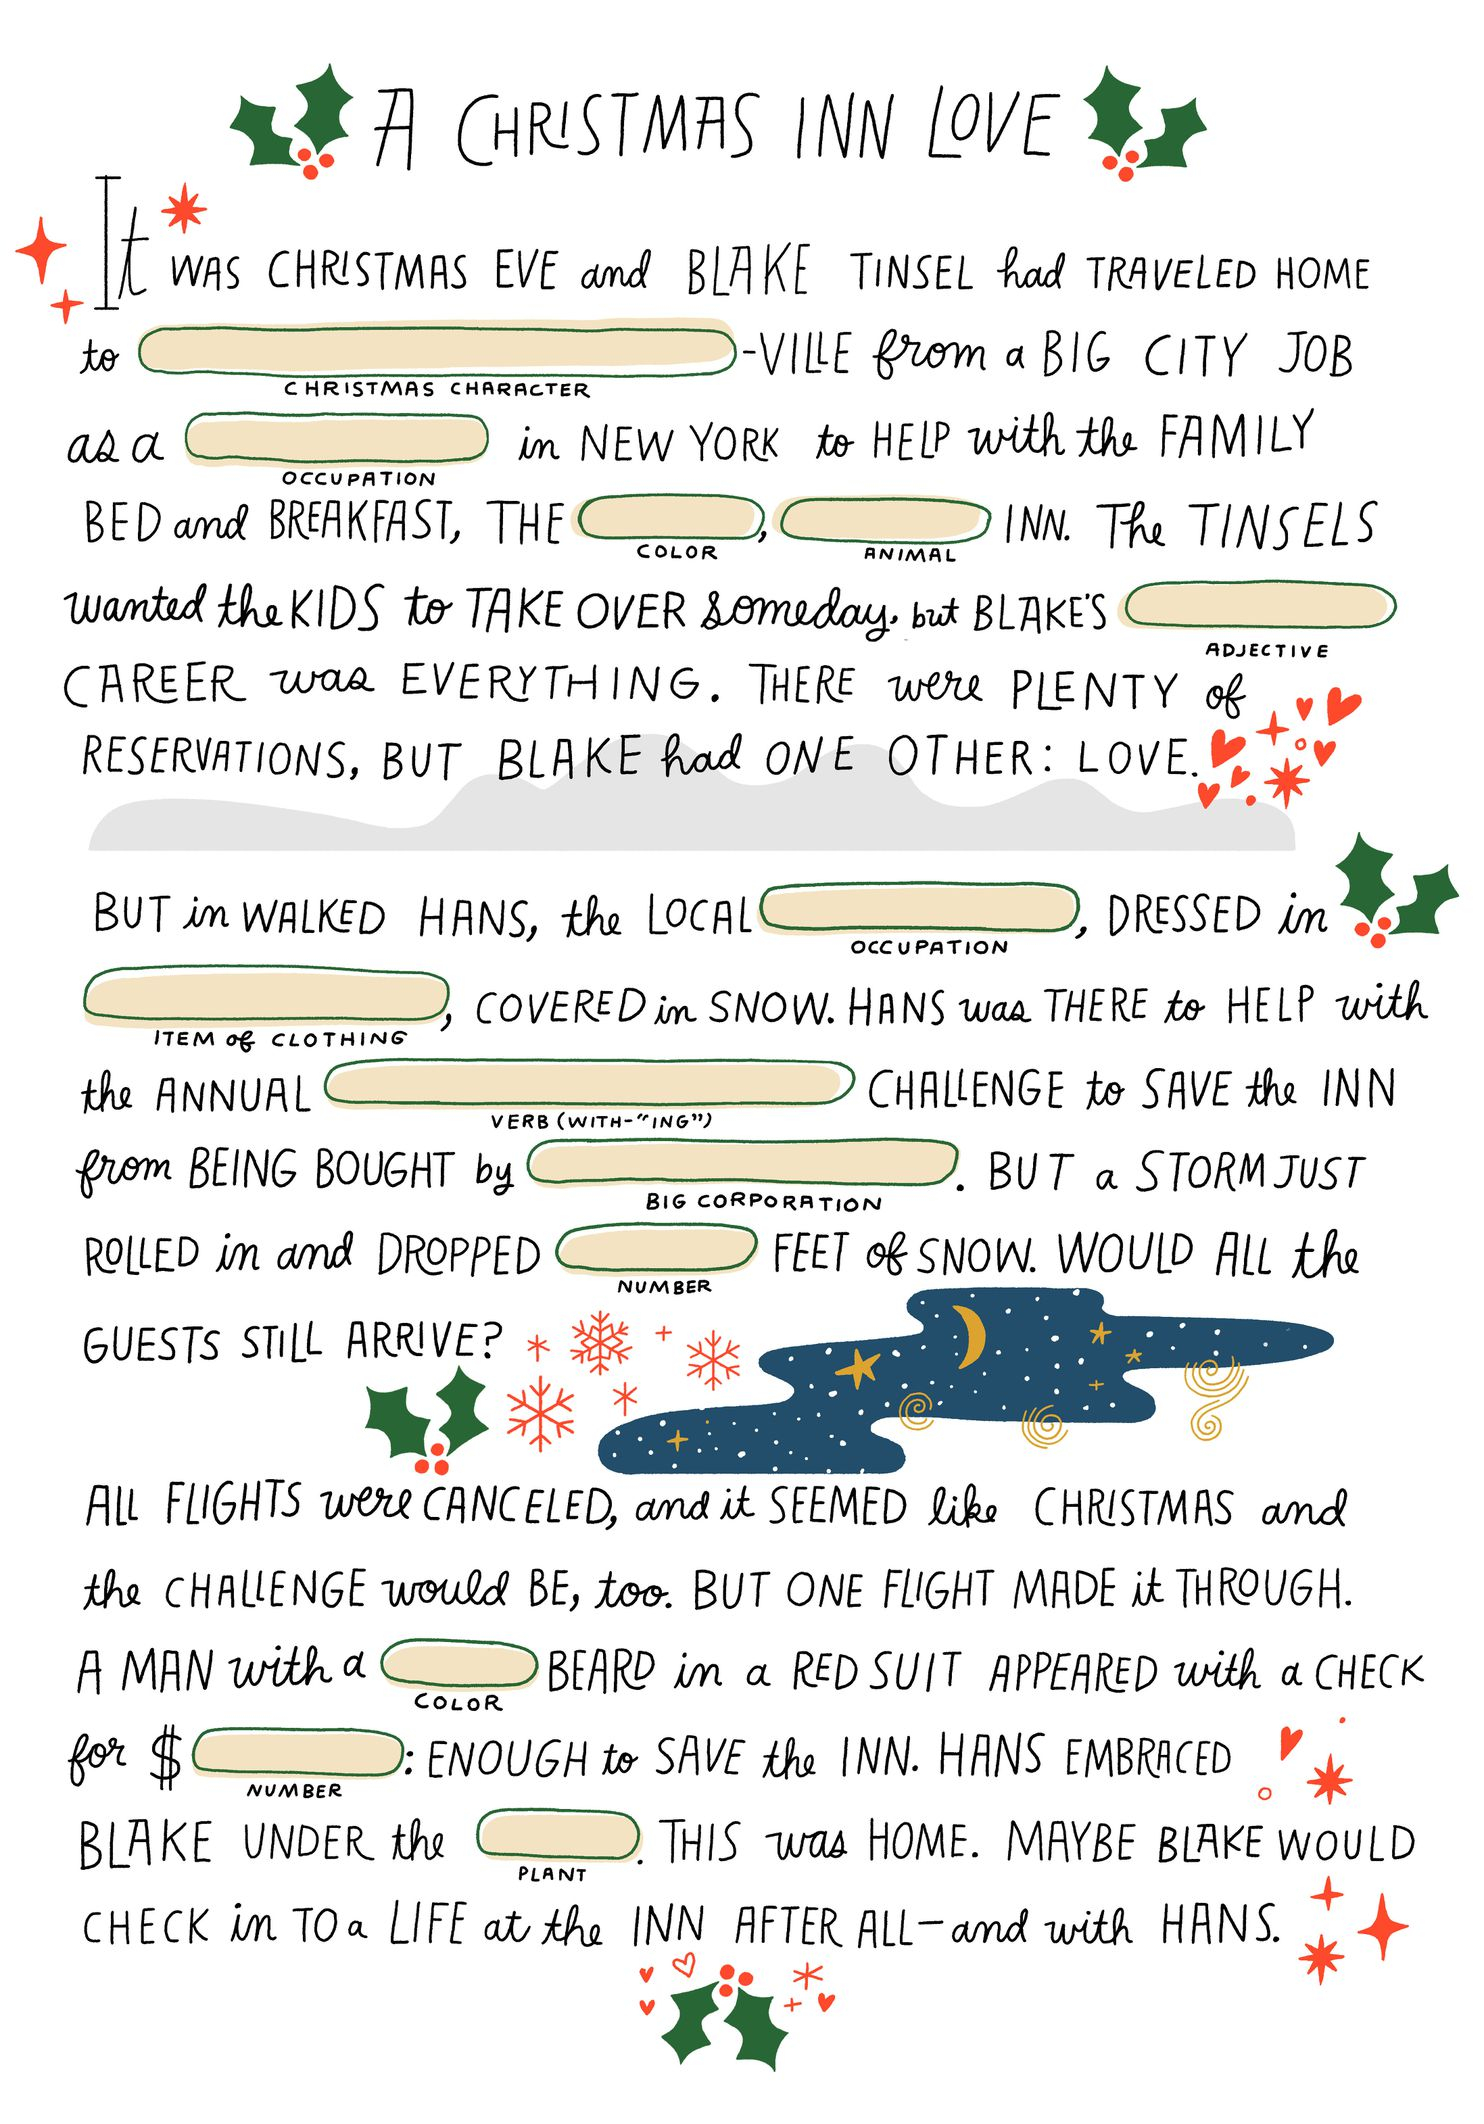 A CHRISTMAS INN LOVE
It WAS CHRISTMAS EVE and BLAKE TINSEL had TRAVELED HOME
to -VILLE from a BIG CITY JOB
CHRISTMAS CHARACTER
as a in NEW YORK to HELP with the FAMILY
OCCUPATION
BED and BREAKFAST, THE , INN. The TINSELS
COLOR ANIMAL
wanted the KIDS to TAKE OVER someday, but BLAKE'S
ADJECTIVE
CAREER was EVERYTHING. THERE were PLENTY of
RESERVATIONS, BUT BLAKE had ONE OTHER: LOVE.
BUT in WALKED HANS, the LOCAL , DRESSED in
OCCUPATION
, COVERED in SNOW. HANS was THERE to HELP with
ITEM of CLOTHING
the ANNUAL CHALLENGE to SAVE the INN
VERB (WITH-"ING")
from BEING BOUGHT by . BUT a STORM JUST
BIG CORPORATION
ROLLED in and DROPPED FEET of SNOW. WOULD ALL the
NUMBER
GUESTS STILL ARRIVE?
ALL FLIGHTS were CANCELED, and it SEEMED like CHRISTMAS and
the CHALLENGE would BE, too. BUT ONE FLIGHT MADE it THROUGH.
A MAN with a BEARD in a RED SUIT APPEARED with a CHECK
COLOR
for $ : ENOUGH to SAVE the INN. HANS EMBRACED
NUMBER
BLAKE UNDER the . THIS was HOME. MAYBE BLAKE WOULD
PLANT
CHECK in TO a LIFE at the INN AFTER ALL—and with HANS.